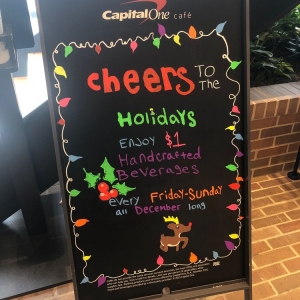 Capital One café
cheers TO
THE
Holidays
ENJOY $1
Handcrafted
Beverages
every Friday-Sunday
all December long